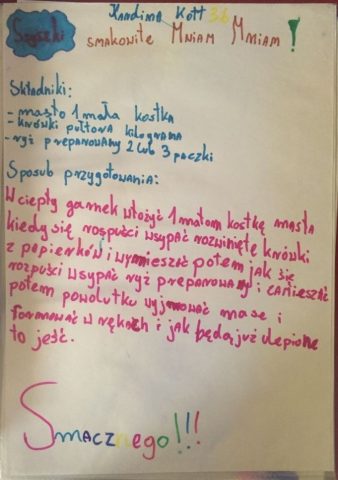 Kott 3b
Szyszki smakowite Mniam Mniam!
Składniki:
- masło 1 mała kostka
- krówki pułtora kilograma
- ryż preparowany 2 lub 3 paczki
Sposub przygotowania:
W ciepły garnek włożyć 1 małom kostkę masła
kiedy się rospuści wsypać rozwinięte krówki
z papierków i wymieszać potem jak się
rozpuści wsypać ryż preparowany i zamieszać
potem powolutku wyjmować mase i
formować w rękach i jak będą już ulepione
to jeść.
Smacznego!!!